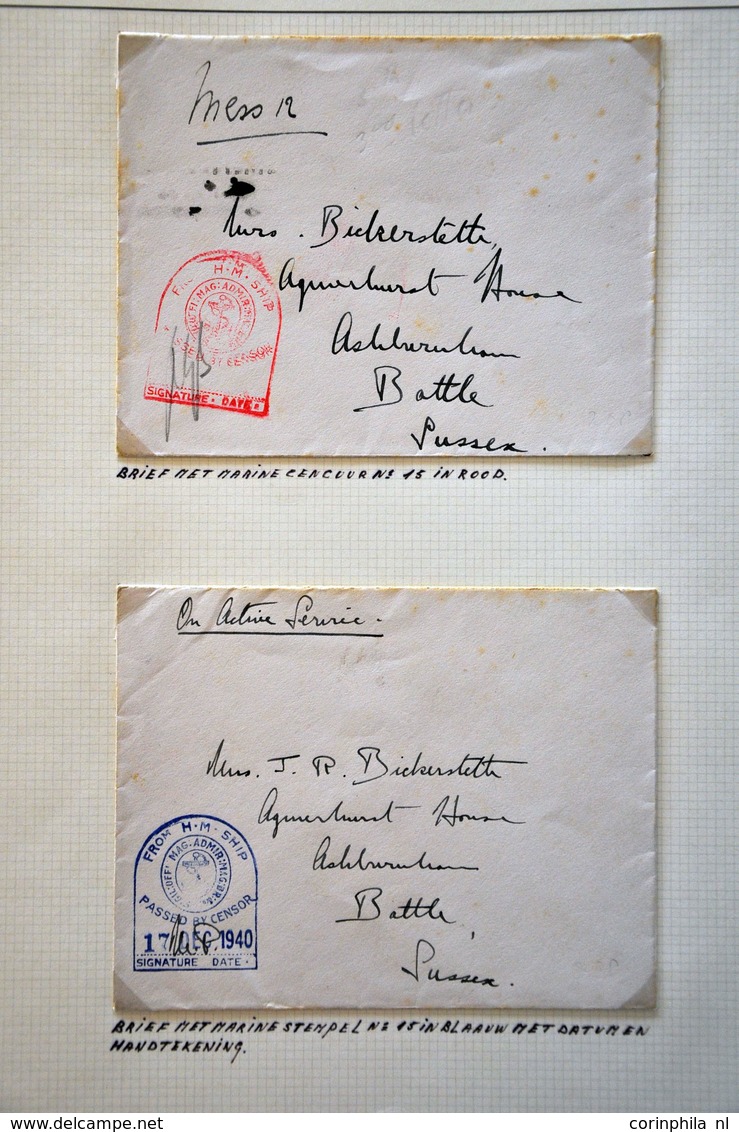 Mess 12
Mrs. Bickersteth,
Aqmerhurst House
Ashburnham
Battle
Sussex.
FROM H·M·SHIP
PASSED BY CENSOR
SIGNATURE · DATE
BRIEF MET MARINE CENCUUR No 15 IN ROOD.
On Active Service.
Mrs. J. R. Bickersteth
Aqmerhurst House
Ashburnham
Battle,
Sussex.
FROM H·M·SHIP
MAG:ADMIR:
PASSED BY CENSOR
17 DEC 1940
SIGNATURE DATE·
BRIEF MET MARINE STEMPEL No 15 IN BLAAUW MET DATUM EN
HANDTEKENING.
corinphila nl